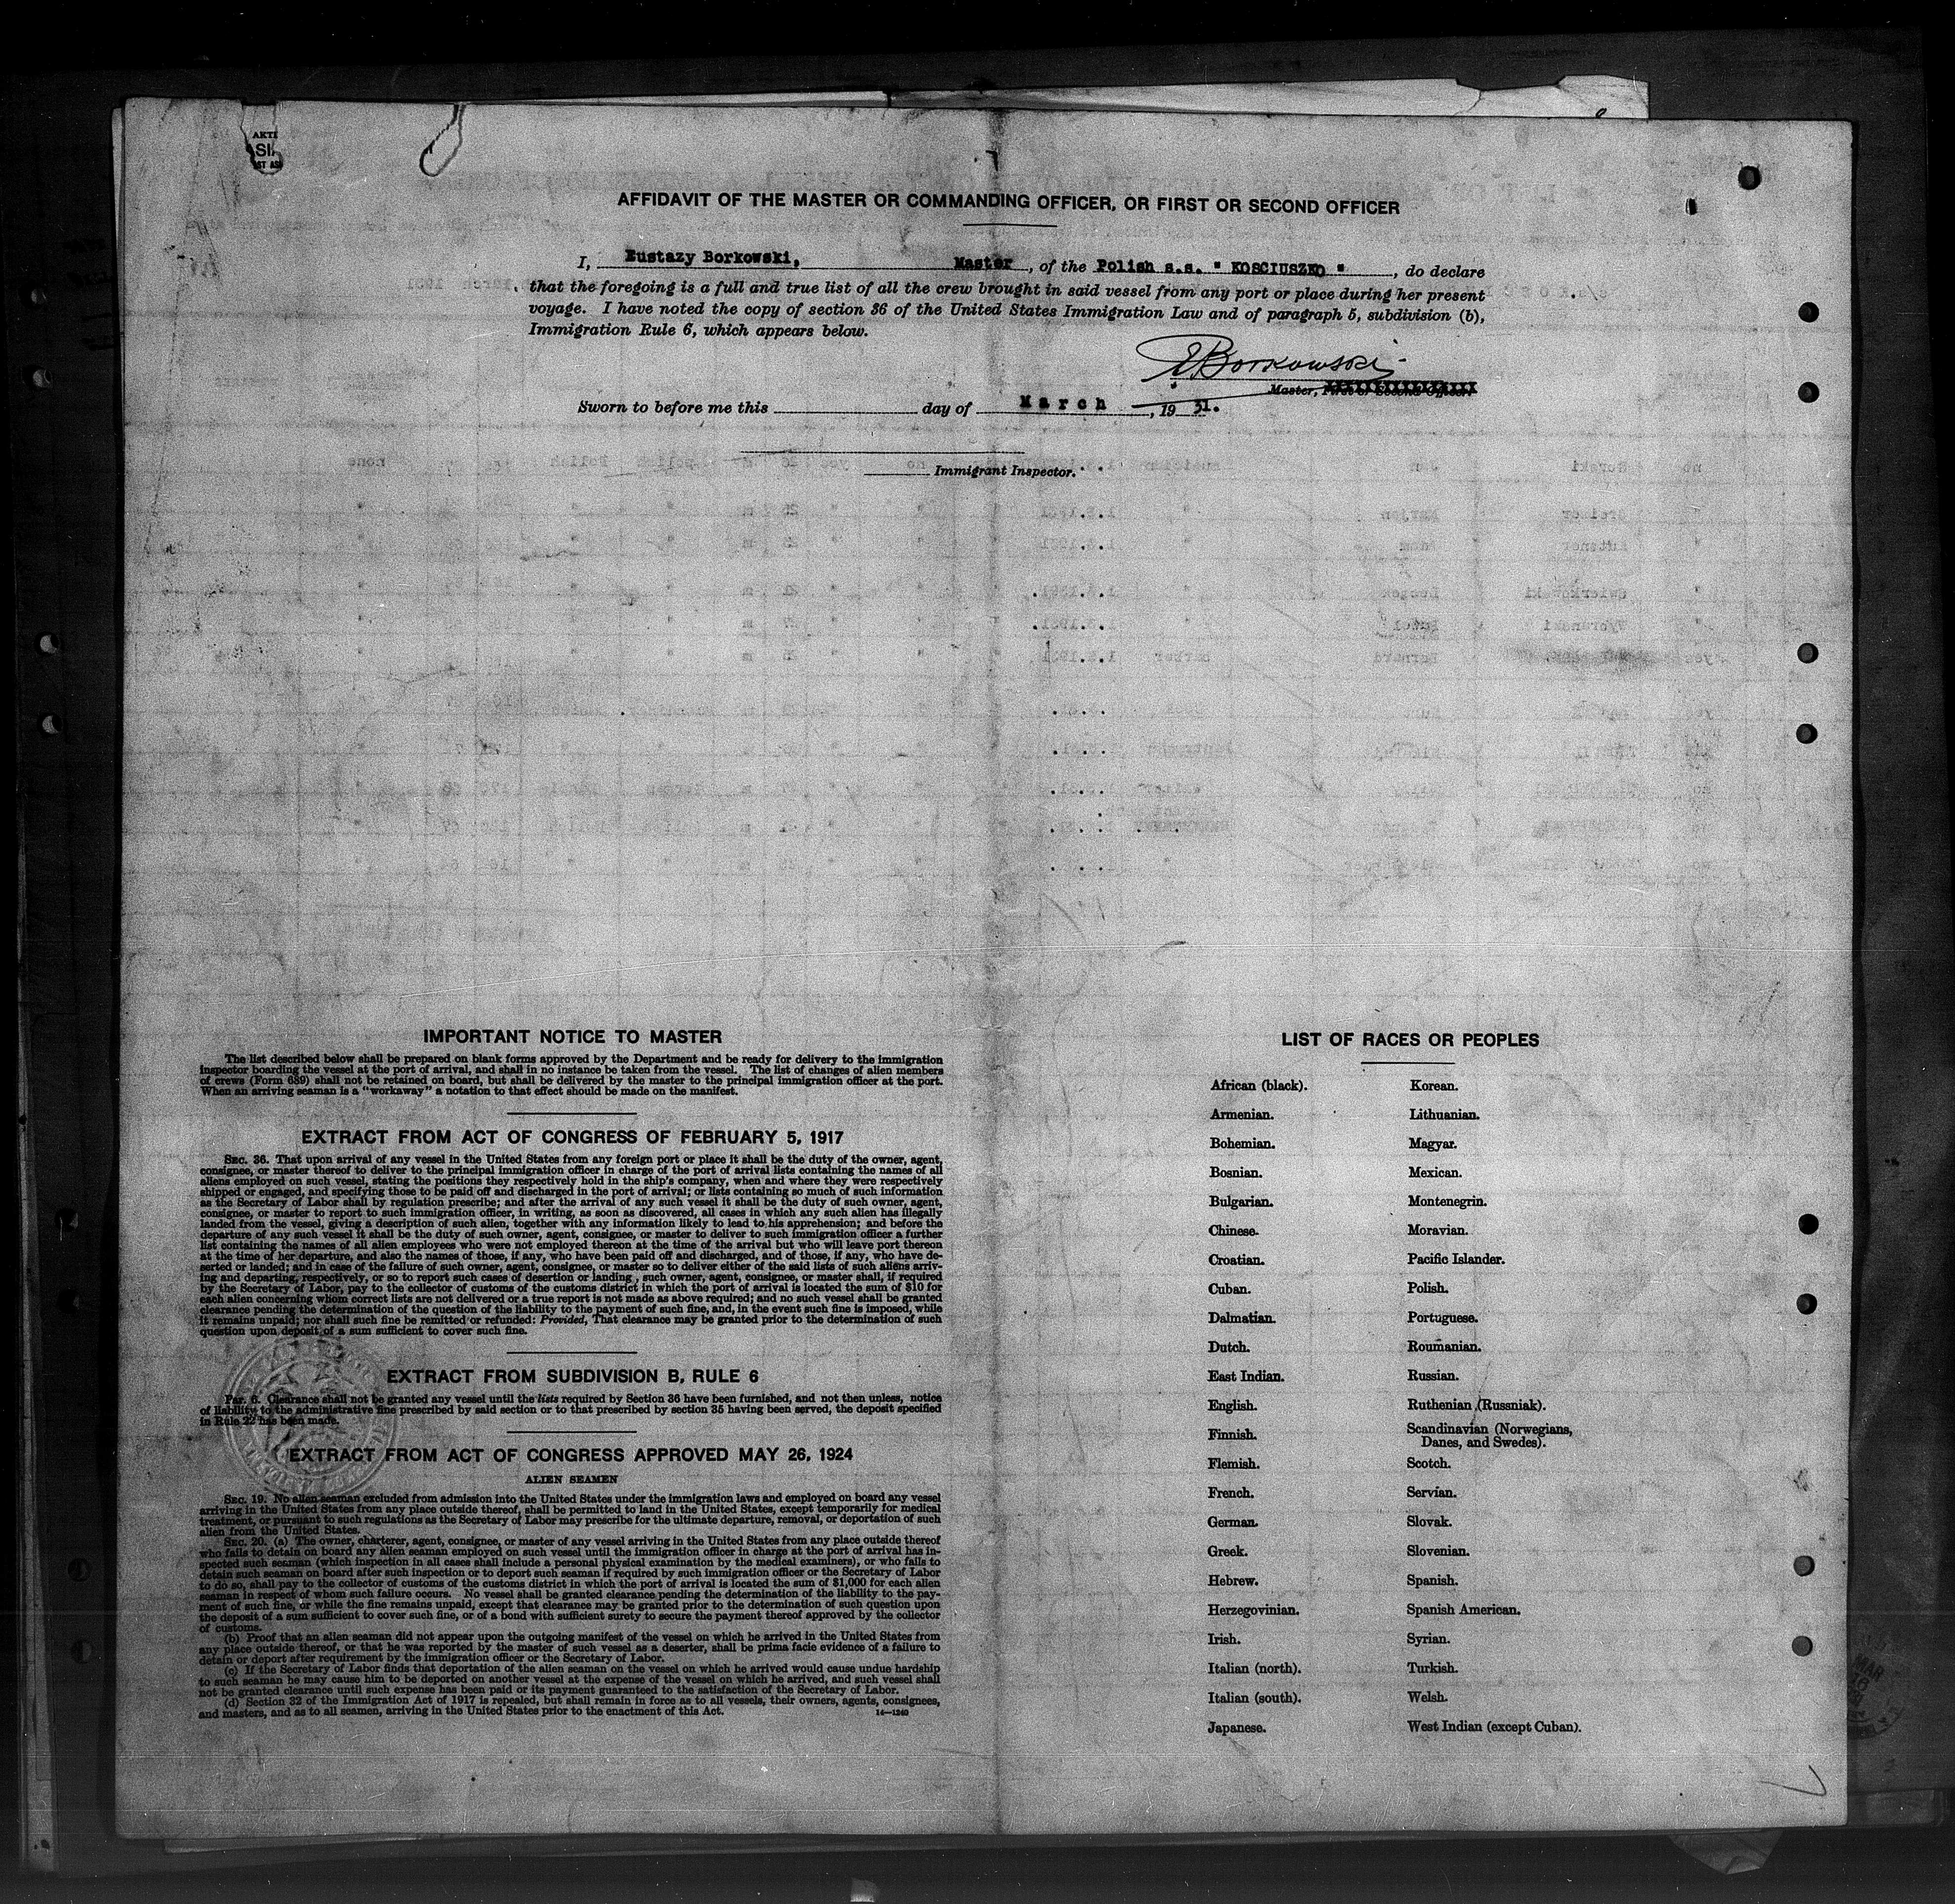 AKTI
SI
ST AS
AFFIDAVIT OF THE MASTER OR COMMANDING OFFICER, OR FIRST OR SECOND OFFICER
I, Eustazy Borkowski, Master, of the Polish s.s. " KOSCIUSZKO ", do declare
that the foregoing is a full and true list of all the crew brought in said vessel from any port or place during her present
voyage. I have noted the copy of section 36 of the United States Immigration Law and of paragraph 5, subdivision (b),
Immigration Rule 6, which appears below.
E Borkowski
Master, First or Second Officer.
Sworn to before me this day of March, 19 31.
Immigrant Inspector.
IMPORTANT NOTICE TO MASTER
The list described below shall be prepared on blank forms approved by the Department and be ready for delivery to the immigration
inspector boarding the vessel at the port of arrival, and shall in no instance be taken from the vessel. The list of changes of alien members
of crews (Form 689) shall not be retained on board, but shall be delivered by the master to the principal immigration officer at the port.
When an arriving seaman is a "workaway" a notation to that effect should be made on the manifest.
EXTRACT FROM ACT OF CONGRESS OF FEBRUARY 5, 1917
SEC. 36. That upon arrival of any vessel in the United States from any foreign port or place it shall be the duty of the owner, agent,
consignee, or master thereof to deliver to the principal immigration officer in charge of the port of arrival lists containing the names of all
aliens employed on such vessel, stating the positions they respectively hold in the ship's company, when and where they were respectively
shipped or engaged, and specifying those to be paid off and discharged in the port of arrival; or lists containing so much of such information
as the Secretary of Labor shall by regulation prescribe; and after the arrival of any such vessel it shall be the duty of such owner, agent,
consignee, or master to report to such immigration officer, in writing, as soon as discovered, all cases in which any such alien has illegally
landed from the vessel, giving a description of such alien, together with any information likely to lead to his apprehension; and before the
departure of any such vessel it shall be the duty of such owner, agent, consignee, or master to deliver to such immigration officer a further
list containing the names of all alien employees who were not employed thereon at the time of the arrival but who will leave port thereon
at the time of her departure, and also the names of those, if any, who have been paid off and discharged, and of those, if any, who have de-
serted or landed; and in case of the failure of such owner, agent, consignee, or master so to deliver either of the said lists of such aliens arriv-
ing and departing, respectively, or so to report such cases of desertion or landing , such owner, agent, consignee, or master shall, if required
by the Secretary of Labor, pay to the collector of customs of the customs district in which the port of arrival is located the sum of $10 for
each alien concerning whom correct lists are not delivered or a true report is not made as above required; and no such vessel shall be granted
clearance pending the determination of the question of the liability to the payment of such fine, and, in the event such fine is imposed, while
it remains unpaid; nor shall such fine be remitted or refunded: Provided, That clearance may be granted prior to the determination of such
question upon deposit of a sum sufficient to cover such fine.
EXTRACT FROM SUBDIVISION B, RULE 6
Par. 6. Clearance shall not be granted any vessel until the lists required by Section 36 have been furnished, and not then unless, notice
of liability to the administrative fine prescribed by said section or to that prescribed by section 35 having been served, the deposit specified
in Rule 22 has been made.
EXTRACT FROM ACT OF CONGRESS APPROVED MAY 26, 1924
ALIEN SEAMEN
SEC. 19. No alien seaman excluded from admission into the United States under the immigration laws and employed on board any vessel
arriving in the United States from any place outside thereof, shall be permitted to land in the United States, except temporarily for medical
treatment, or pursuant to such regulations as the Secretary of Labor may prescribe for the ultimate departure, removal, or deportation of such
alien from the United States.
SEC. 20. (a) The owner, charterer, agent, consignee, or master of any vessel arriving in the United States from any place outside thereof
who fails to detain on board any alien seaman employed on such vessel until the immigration officer in charge at the port of arrival has in-
spected such seaman (which inspection in all cases shall include a personal physical examination by the medical examiners), or who fails to
detain such seaman on board after such inspection or to deport such seaman if required by such immigration officer or the Secretary of Labor
to do so, shall pay to the collector of customs of the customs district in which the port of arrival is located the sum of $1,000 for each alien
seaman in respect of whom such failure occurs. No vessel shall be granted clearance pending the determination of the liability to the pay-
ment of such fine, or while the fine remains unpaid, except that clearance may be granted prior to the determination of such question upon
the deposit of a sum sufficient to cover such fine, or of a bond with sufficient surety to secure the payment thereof approved by the collector
of customs.
(b) Proof that an alien seaman did not appear upon the outgoing manifest of the vessel on which he arrived in the United States from
any place outside thereof, or that he was reported by the master of such vessel as a deserter, shall be prima facie evidence of a failure to
detain or deport after requirement by the immigration officer or the Secretary of Labor.
(c) If the Secretary of Labor finds that deportation of the alien seaman on the vessel on which he arrived would cause undue hardship
to such seaman he may cause him to be deported on another vessel at the expense of the vessel on which he arrived, and such vessel shall
not be granted clearance until such expense has been paid or its payment guaranteed to the satisfaction of the Secretary of Labor.
(d) Section 32 of the Immigration Act of 1917 is repealed, but shall remain in force as to all vessels, their owners, agents, consignees,
and masters, and as to all seamen, arriving in the United States prior to the enactment of this Act.
14—1240
LIST OF RACES OR PEOPLES
African (black).
Armenian.
Bohemian.
Bosnian.
Bulgarian.
Chinese.
Croatian.
Cuban.
Dalmatian.
Dutch.
East Indian.
English.
Finnish.
Flemish.
French.
German.
Greek.
Hebrew.
Herzegovinian.
Irish.
Italian (north).
Italian (south).
Japanese.
Korean.
Lithuanian.
Magyar.
Mexican.
Montenegrin.
Moravian.
Pacific Islander.
Polish.
Portuguese.
Roumanian.
Russian.
Ruthenian (Russniak).
Scandinavian (Norwegians,
Danes, and Swedes).
Scotch.
Servian.
Slovak.
Slovenian.
Spanish.
Spanish American.
Syrian.
Turkish.
Welsh.
West Indian (except Cuban).
MAR
16